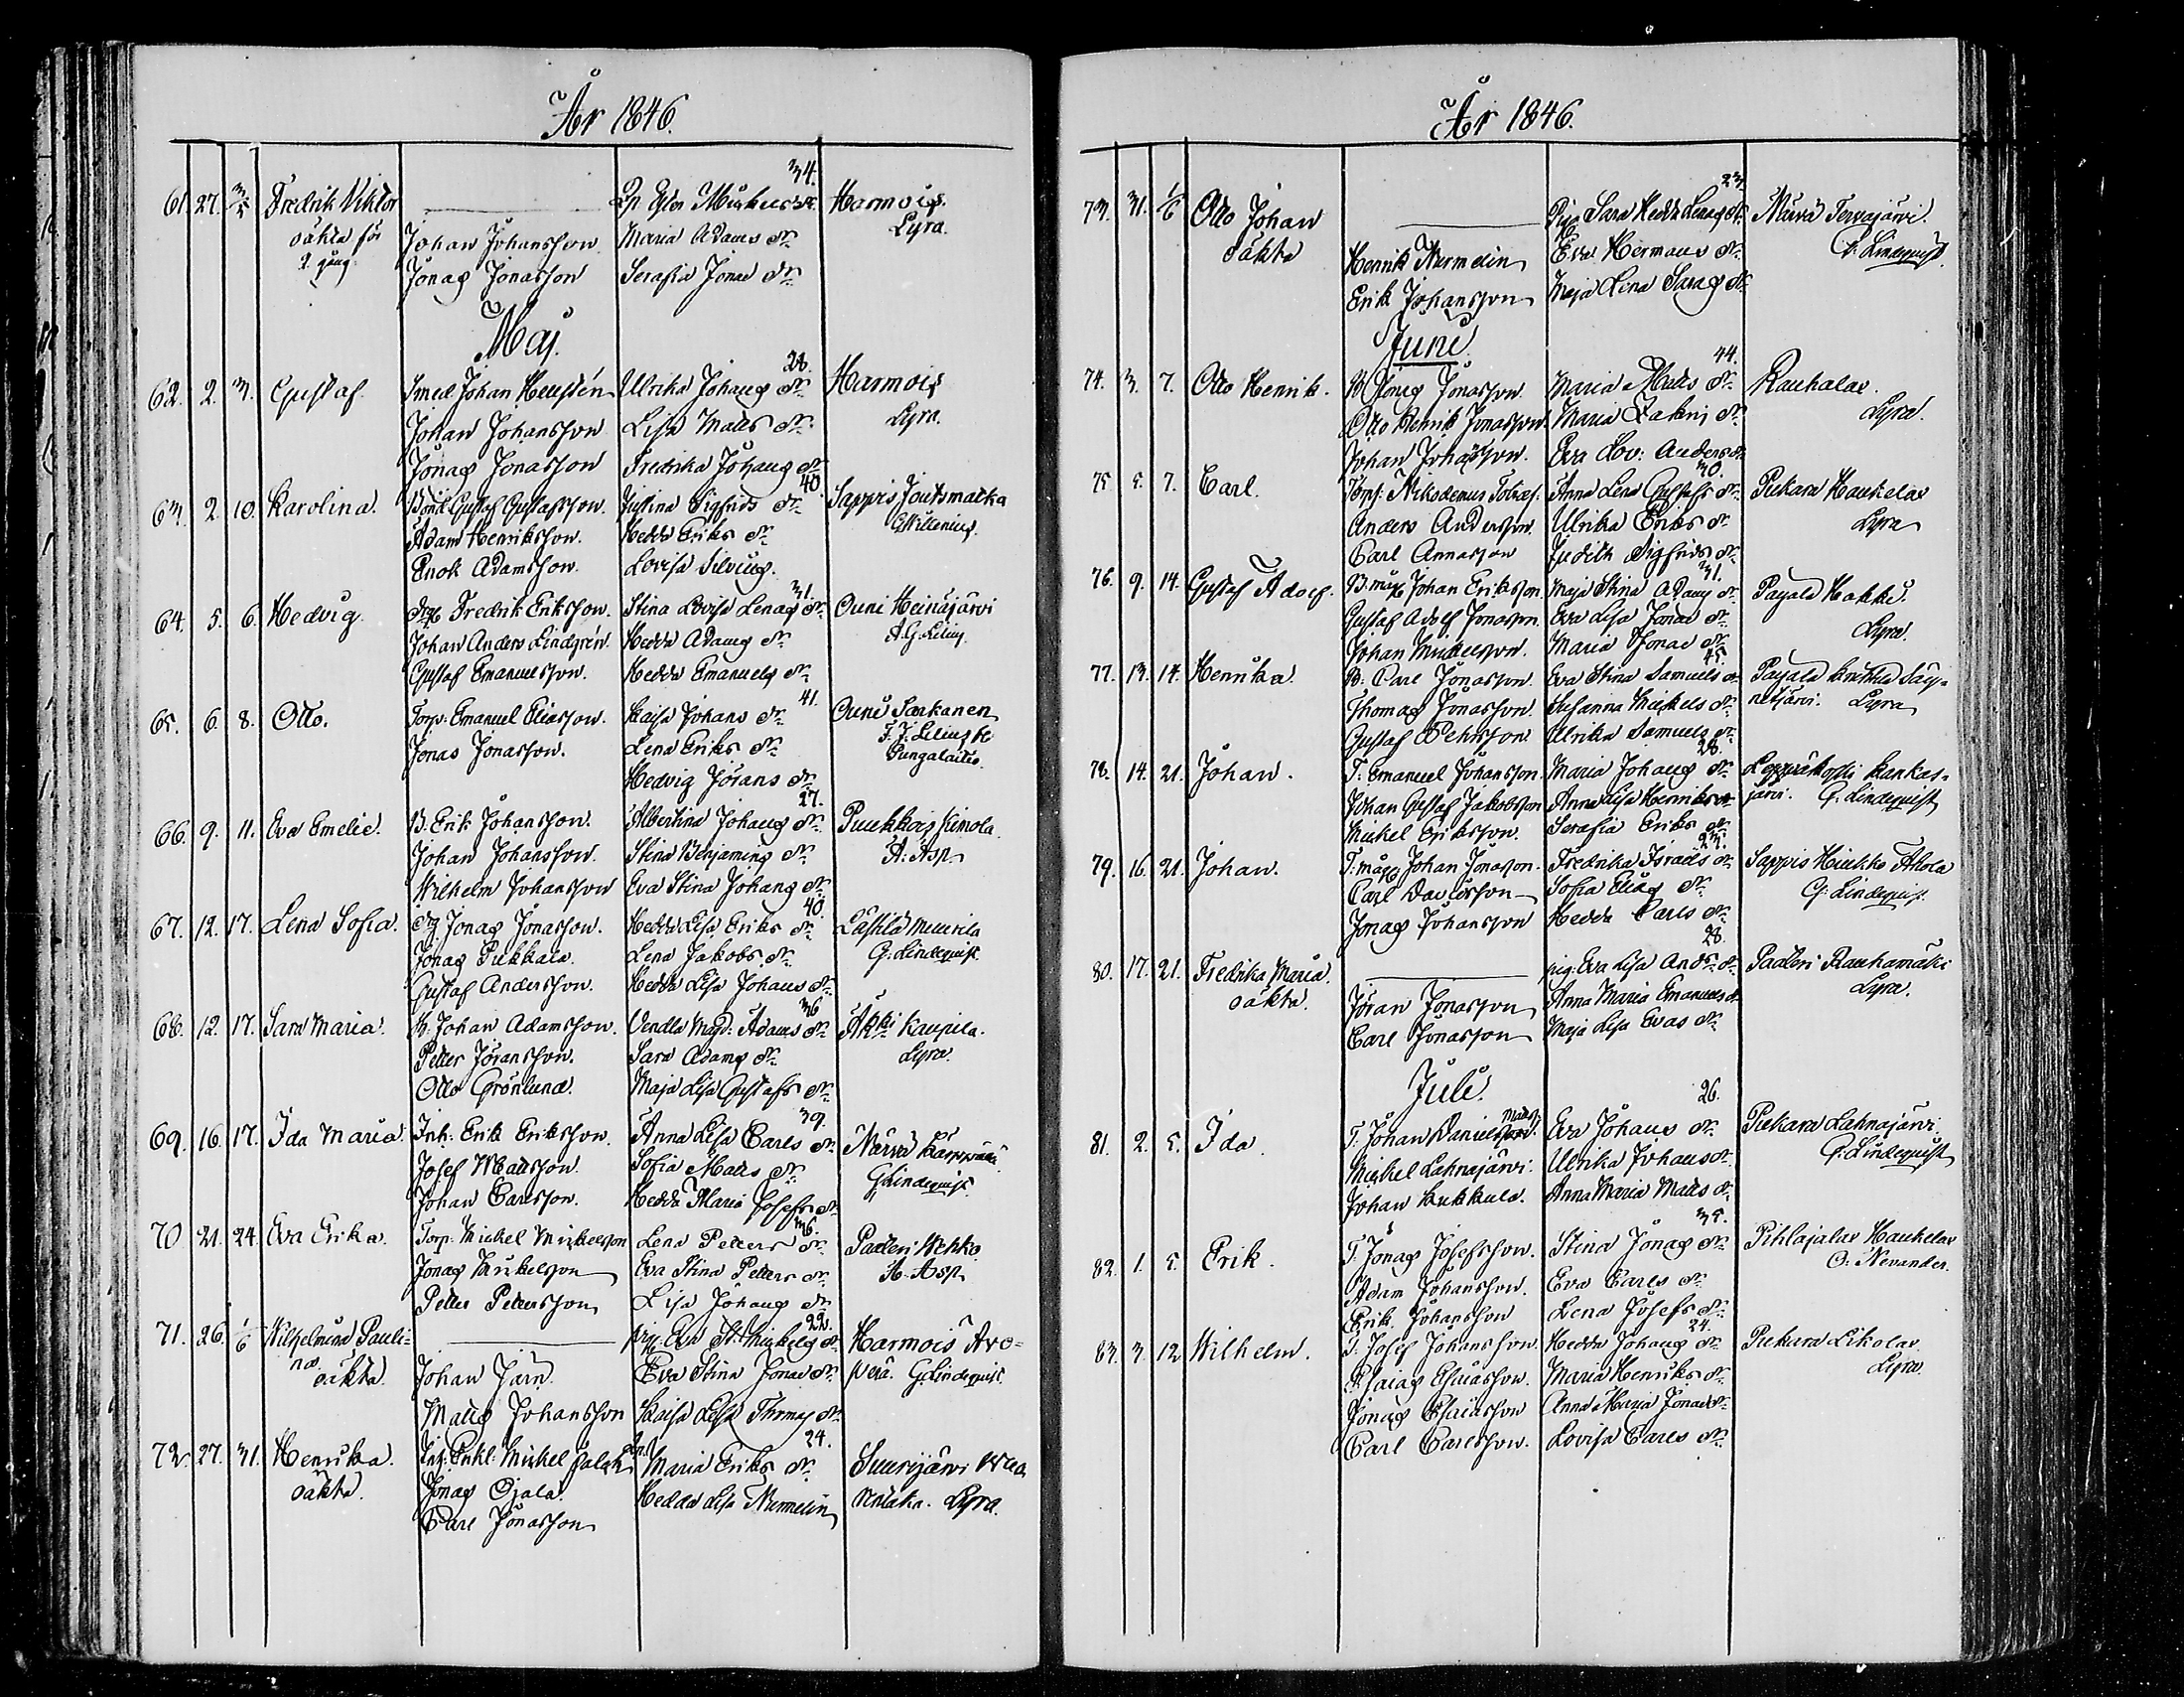 År 1846.
61. 27. 3/5 Fredrik Viktor 34. Harmois
oäkta för Johan Johansson Maria Adams dr. Lyra.
2. gång. Jonas Jonasson Serafia Jonae dr.
Maj.
28.
62. 2. 3. Gustaf. Smed Johan Ulrika Johans dr. Harmois
Johan Johansson Lisa Matts dr. Lyra.
Jonas Jonasson Fredrika Johans dr.
40.
63. 2. 10. Karolina. Bond. Gustaf Gustafsson. Justina Sigfrids dr. Sappis Joutsmatka
Adam Henriksson. Hedda Eriks dr.
Enok Adamsson. Lovisa
31.
64. 5. 6. Hedvig. Fredrik Eriksson. Stina Lovisa Lenas dr. Ouni Heinäjärvi
Johan Anders Lindgrén. Hedda Adams dr. A. G. Lilius
Gustaf Emanuelsson. Hedda Emanuels dr.
41.
65. 6. 8. Otto. Torp. Emanuel Eliasson. Kaisa Johans dr. Ouni Sarkanen
Jonas Jonasson. Lena Eriks dr. Lilius
Hedvig Jörans dr. Pungalaitio.
27.
66. 9. 11. Eva Emelie. B. Erik Johansson. Albertina Johans dr. Puukkois Kimola.
Johan Johansson. Stina Benjamins dr. A: Asp
Wilhelm Johansson Eva Stina Johans dr.
40.
67. 12. 17. Lena Sofia. Jonas Jonasson. Hedda Lisa Eriks dr.
Jonas Pukkala. Lena Jakobs dr. G: Lindequist.
Gustaf Andersson. Hedda Lisa Johans dr.
36
68. 12. 17. Sara Maria. B. Johan Adamsson. Vendla Magd: Adams dr. Kaupila.
Petter Jöransson. Sara Adams dr. Lyra.
Otto Grönlund. Maja Lisa Gustafs dr.
39.
69. 16. 17. Ida Maria. Inh: Erik Eriksson. Anna Lisa Carls dr. Närvä
Josef Mattsson. Sofia Matts dr. G Lindequist.
Johan Carlsson. Hedda Maria Josefs dr.
36.
70 21. 24. Eva Erika. Torp: Mickel Mickelsson Lena Petters dr. Paderi Uhko
Jonas Mickelsson Eva Stina Petters dr. A. Asp
Petter Pettersson Lisa Johans dr.
22.
71. 26. 1/6 Wilhelmina Pauli= pig. Eva St. Mickels dr. Harmois Aro=
na oäkta. Johan Järn. Eva Stina Jonae dr. perä. G. Lindequist.
Matts Johansson Kaisa Lisa Thomas dr.
24.
72. 27. 31. Henrika. Mickel Maria Eriks dr. Suurijärvi
oäkta. Jonas Ojala. Hedda Lisa Nurmelin Lyra.
Carl Jonasson
År 1846.
23.
73. 31. 1/6 Otto Johan Pig Sara Hedda Lenas dr. Närvä Tervajärvi.
oäkta Henrik Nurmelin Eva Hermans dr. G: Lindequist.
Erik Johansson Maja Lena Saras dr.
Juni
44.
74. 3. 7. Otto Henrik. B. Jonas Jonasson. Maria Matts dr. Rauhalax.
Otto Henrik Jonasson. Maria Zakris dr. Lyra.
Johan Johansson. Eva Lov: Anders dr.
30.
75. 5. 7. Carl. Torp: Nikodemus Anna Lena Gustafs dr. Piekara Haukelax
Anders Andersson. Ulrika Eriks dr. Lyra
Carl Annasson Judith Sigfrids dr.
31.
76. 9. 14. Gustaf Adolf. B. måg Johan Eriksson. Maja Stina Adams dr. Payala Hakki.
Gustaf Adolf Jonasson. Eva Lisa Jonae dr. Lyra.
Johan Mickelsson. Maria Jonae dr.
45.
77. 13. 14. Henrika. B. Carl Jonasson. Eva Stina Samuels dr. Payala Säy=
Thomas Jonasson. Susanna Mickels dr. netjärvi. Lyra
Gustaf Pehrsson Ulrika Samuels dr.
28.
78. 14. 21. Johan. T. Emanuel Johansson. Maria Johans dr. Leppäkoski Kankas=
Johan Gustaf Jakobsson Anna Lisa Henriks dr. järvi. G: Lindequist
Mickel Eriksson. Serafia Eriks dr.
23.
79. 16. 21. Johan. T: måg Johan Jonasson. Fredrika Israels dr. Sappis
Carl Davidsson Sofia Elias dr. G: Lindequist.
Jonas Johansson Hedda Carls dr.
28.
80. 17. 21. Fredrika Maria. pig. Eva Lisa Ands. dr. Paderi Rauhamäki
oäkta. Jöran Jonasson Anna Maria Emanuels dr. Lyra.
Carl Jonasson Maja Lisa Evas dr.
Juli.
26.
81. 2. 5. Ida. T. Johan Danielsson. Eva Johans dr. Piekara Lahnajärvi.
Mickel Lahnajärvi. Ulrika Johans dr. G: Lindequist
Johan Kukkula. Anna Maria Matts dr.
35.
82. 1. 5. Erik. T. Jonas Josefsson. Stina Jonas dr. Pihlajalax Haukelax
Adam Johansson. Eva Carls dr. O: Nevander.
Erik Johansson Lena Josefs dr.
24.
83. 3. 12 Wilhelm. T. Josef Johansson. Hedda Johans dr. Piekara Likolax
Esaias Esaiasson. Maria Henriks dr. Lyra.
Jonas Esaiasson Anna Maria Jonae dr.
Carl Carlsson. Lovisa Carls dr.